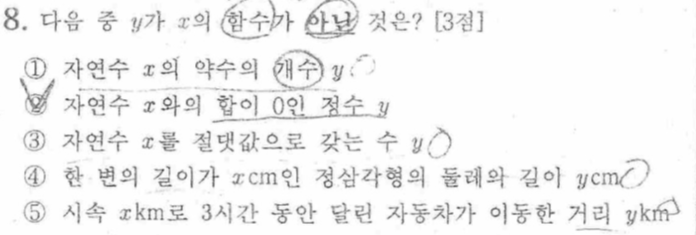 8. 다음 중 y가 x의 함수가 아닌 것은? [3점]
① 자연수 x의 약수의 개수 y
② 자연수 x와의 합이 0인 정수 y
③ 자연수 x를 절댓값으로 갖는 수 y
④ 한 변의 길이가 xcm인 정삼각형의 둘레의 길이 ycm
⑤ 시속 xkm로 3시간 동안 달린 자동차가 이동한 거리 ykm